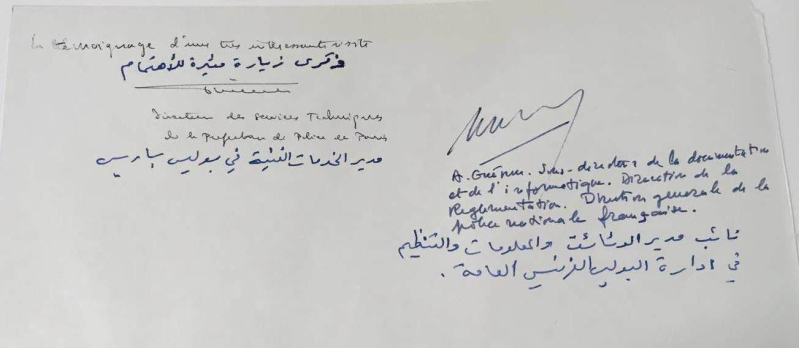 En témoignage d'une très intéressante visite
ذكرى زيارة مثيرة للأهتمام
Directeur des Services Techniques
de la Préfecture de Police de Paris
مدير الخدمات الفنية في بوليس باريس
A. Guérin. Sous-directeur de la documentation
et de l'informatique. Direction de la
Réglementation. Direction générale de la
police nationale française.
نائب مدير الوثائق والمعلومات والتنظيم
في ادارة البوليس الفرنسي العامة.